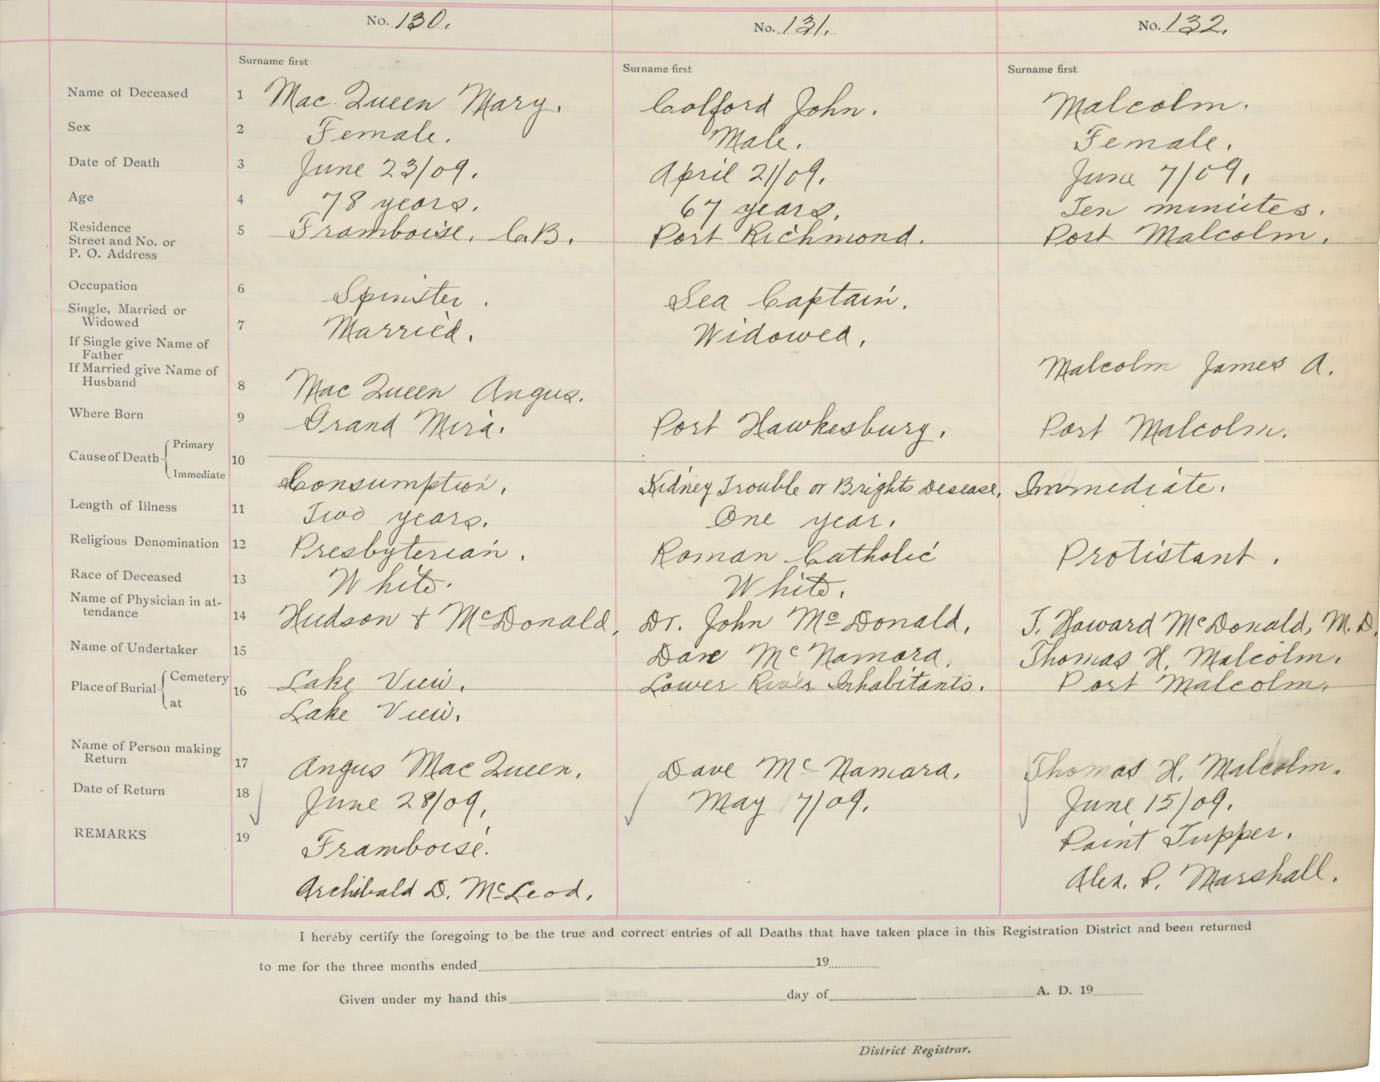 No. 130. No. 131. No. 132.
Surname first Surname first Surname first
Name of Deceased 1 Mac Queen Mary. Colford John. Malcolm.
Sex 2 Female. Male. Female.
Date of Death 3 June 23/09. April 21/09. June 7/09.
Age 4 78 years. 67 years. Ten minutes.
Residence
Street and No. or 5 Framboise, C.B. Port Richmond. Port Malcolm.
P. O. Address
Occupation 6 Spinster. Sea Captain.
Single, Married or
Widowed 7 Married. Widowed.
If Single give Name of
Father Malcolm James A.
If Married give Name of
Husband 8 Mac Queen Angus.
Where Born 9 Grand Mira. Port Hawkesbury. Port Malcolm.
Cause of Death Primary
Immediate 10 Consumption. Kidney Trouble or Brights Desease. Immediate.
Length of Illness 11 Two years. One year.
Religious Denomination 12 Presbyterian. Roman Catholic Protistant.
Race of Deceased 13 White. White.
Name of Physician in at-
tendance 14 Hudson + McDonald. Dr. John McDonald. J. Howard McDonald, M.D.
Name of Undertaker 15 Dave McNamara. Thomas H. Malcolm.
Place of Burial Cemetery 16 Lake View. Lower River Inhabitants. Port Malcolm.
at Lake View.
Name of Person making
Return 17 Angus Mac Queen. Dave McNamara. Thomas H. Malcolm.
Date of Return 18 June 28/09. May 7/09. June 15/09.
REMARKS 19 Framboise. Point Tupper.
Archibald D. McLeod. Alex. P. Marshall.
I hereby certify the foregoing to be the true and correct entries of all Deaths that have taken place in this Registration District and been returned
to me for the three months ended 19
Given under my hand this day of A. D. 19
District Registrar.